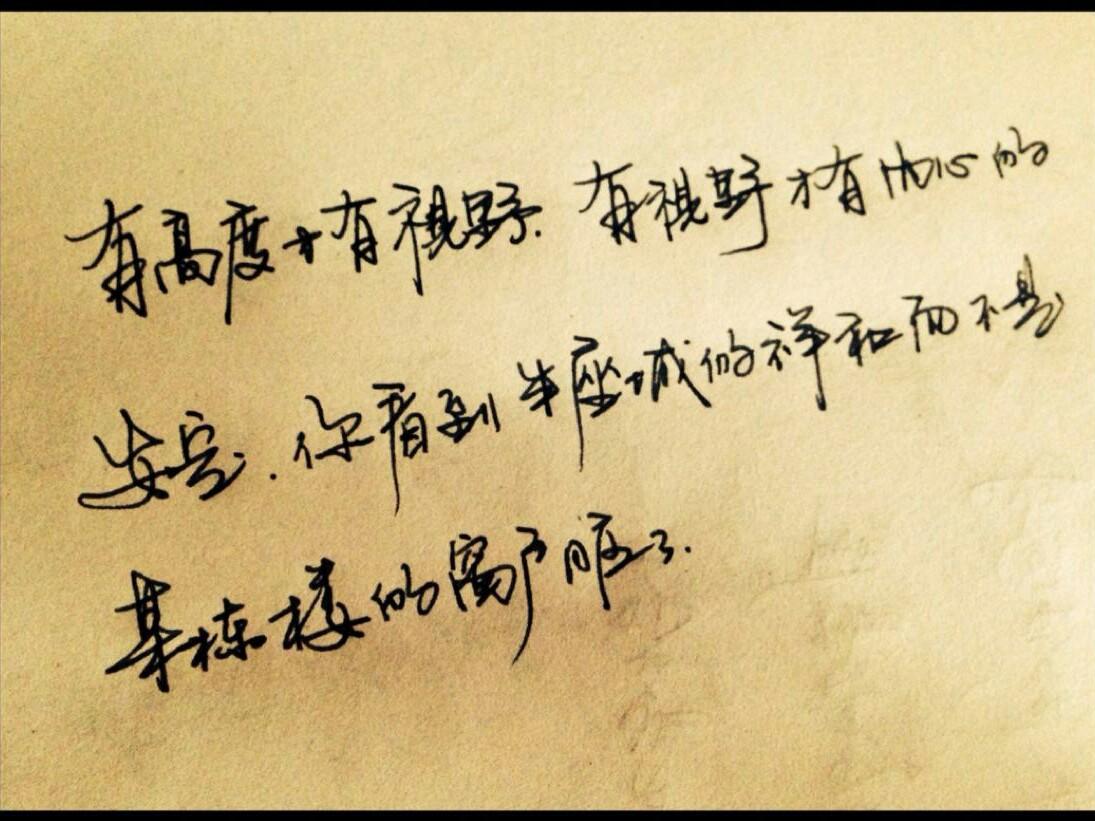 有高度才有视野.有视野才有内心的
安宁.你看到半座城的祥和而不是
某栋楼的窗户脏了.